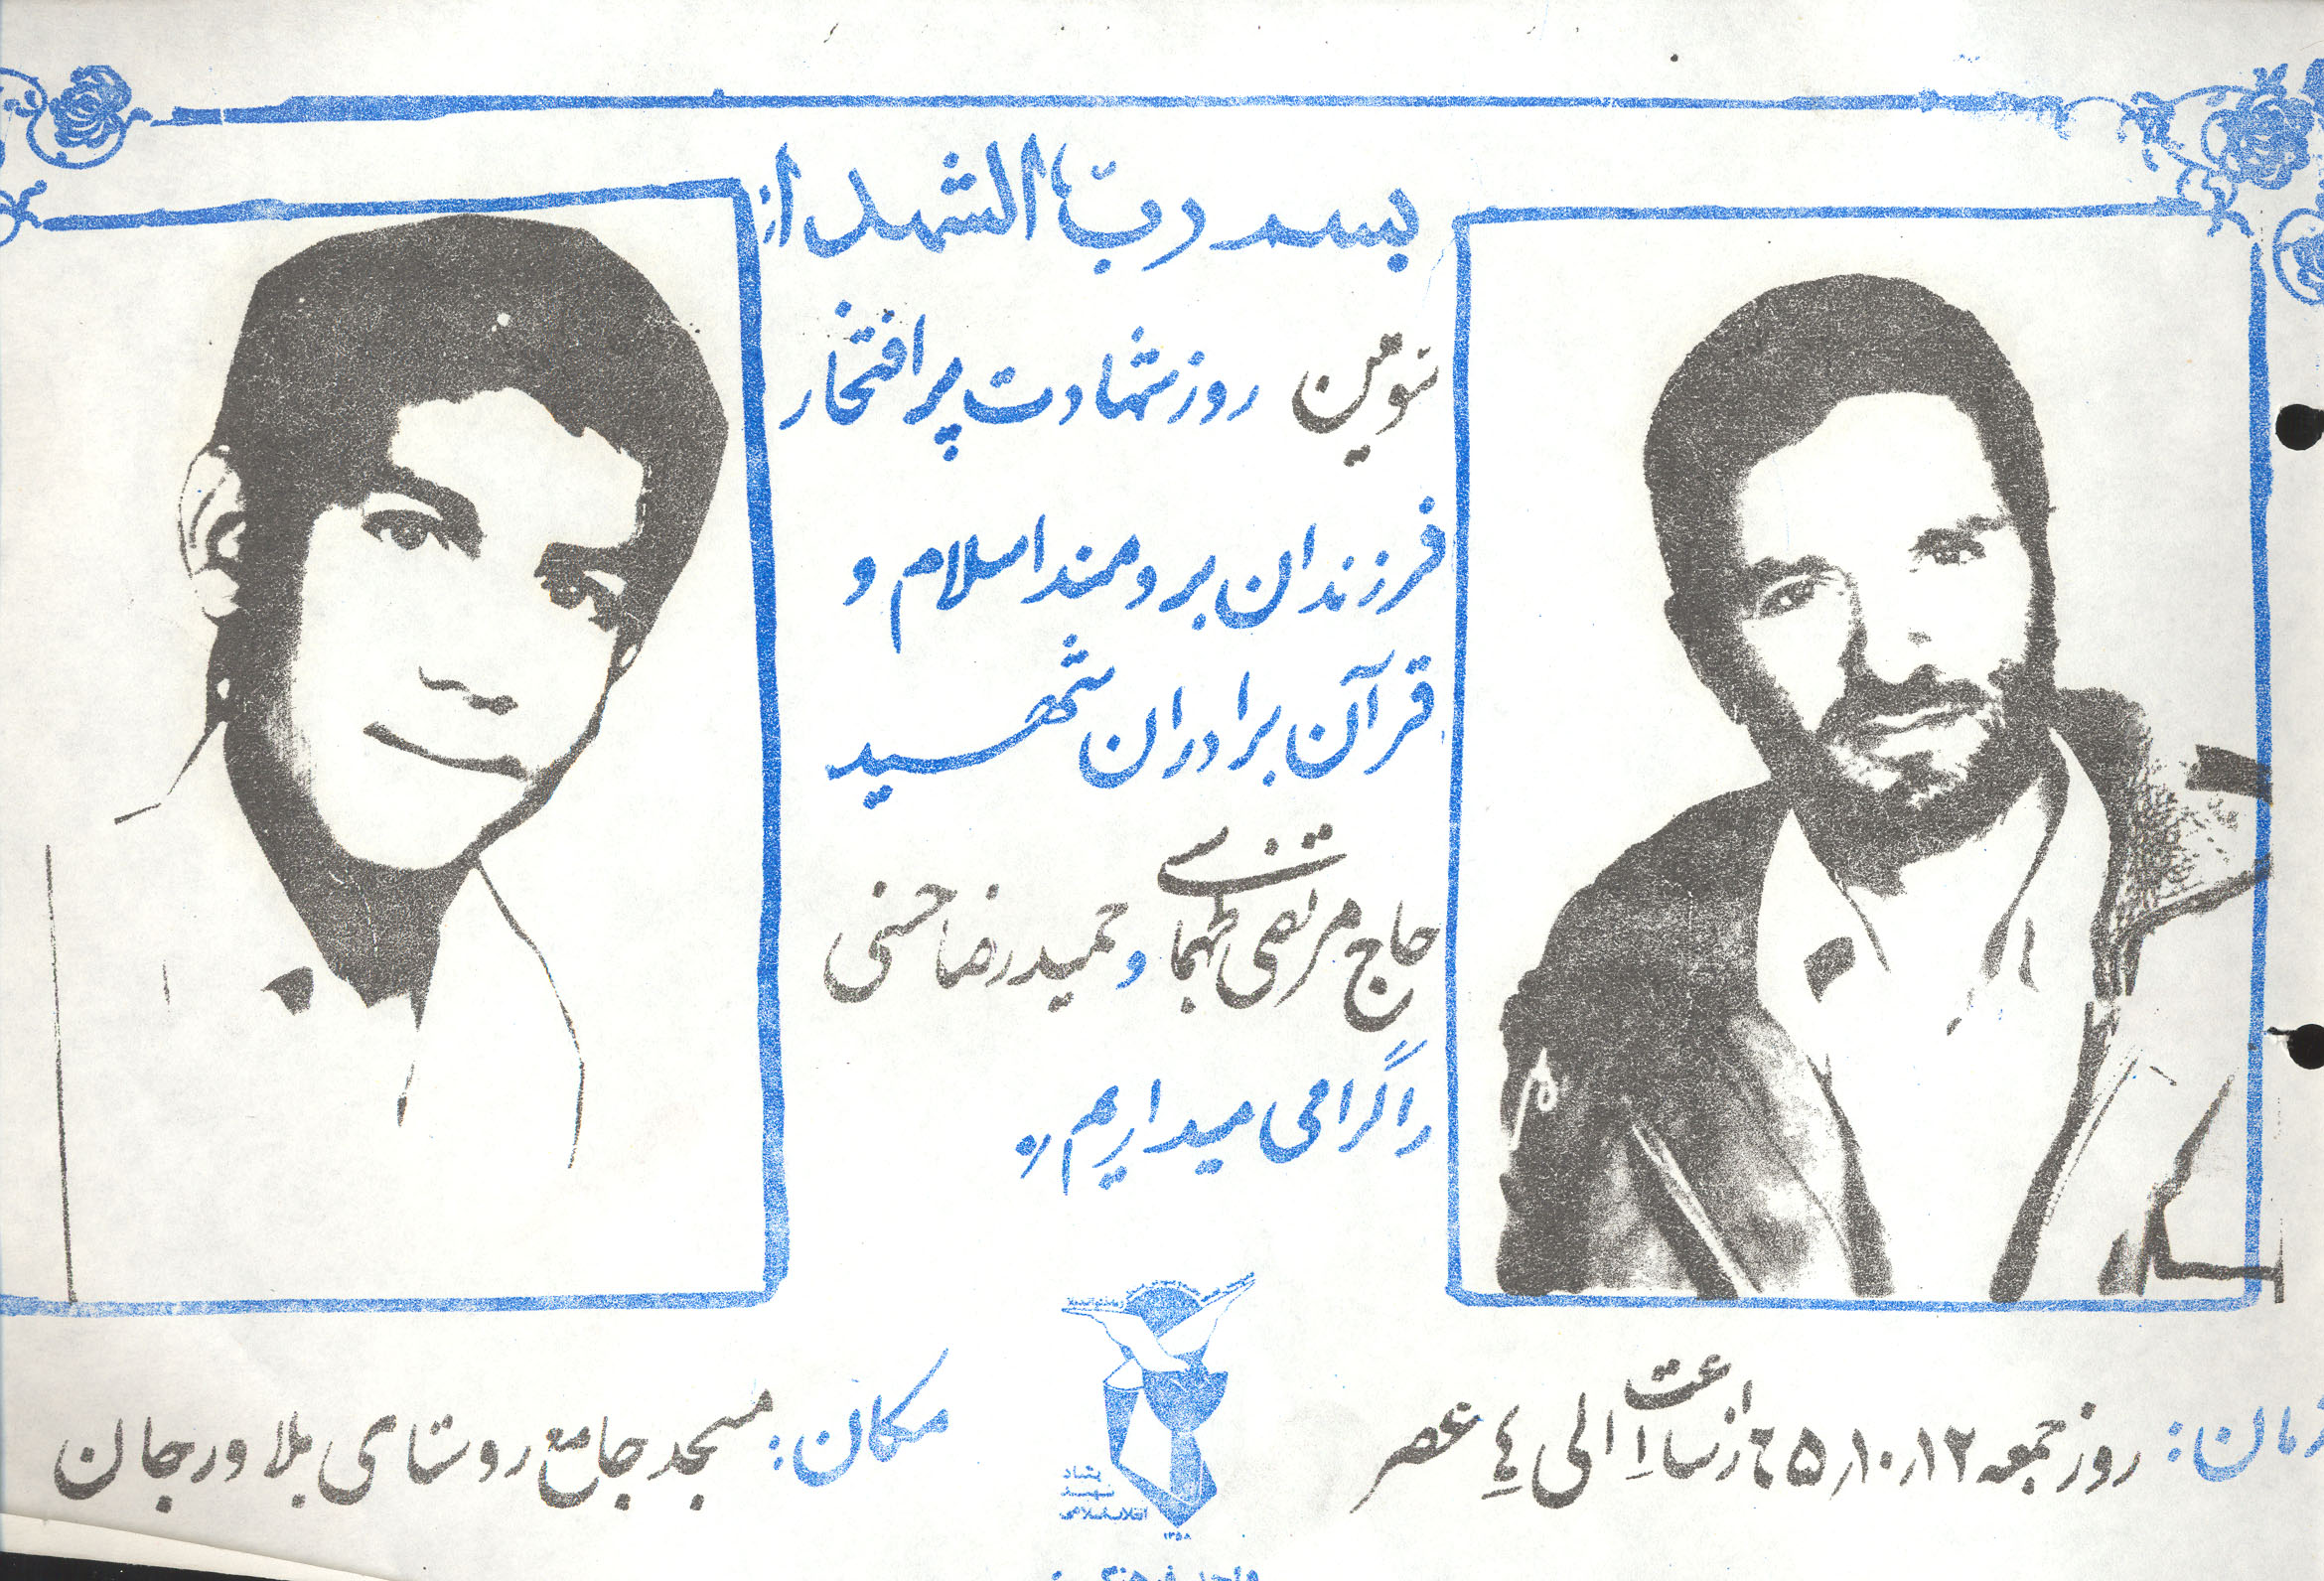 بسم رب الشهداء
سومین روز شهادت پر افتخار
فرزندان برومند اسلام و
قرآن برادران شهید
حاج مرتضی بهجا تنزی و حمیدرضا حسنی
را گرامی میداریم
زمان: روز جمعه ۶۵٫۱۰٫۱۲ از ساعت ۲ الی ۴ عصر
مکان: مسجد جامع روستای بلاورجان
بنیاد
شهید
انقلاب اسلامی
۱۳۵۸
واحد فرهنگی